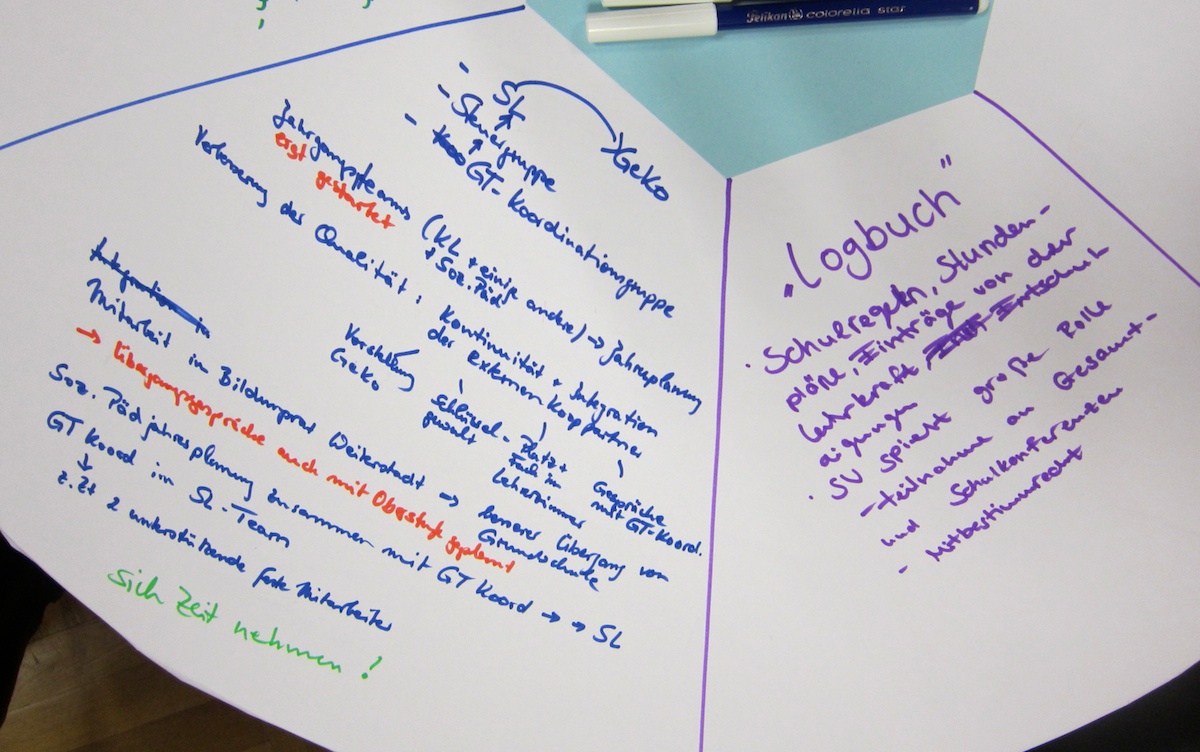 Pelikan colorella star
- SL
- Steuergruppe
- GT-Koordinationsgruppe
GeKo
Jahrgangsteams (KL + einige andere) → Jahresplanung
+ Soz.Päd
erst gestartet
Verbesserung der Qualität:
Kontinuität + Integration
der externen Kooppartner
Vorstellung
GeKo
Schlüssel-
gewalt
Platz +
Fach im
Lehrerzimmer
Gespräche
mit GT-Koord.
Integration in
Mitarbeit im Bildungsrat Weiterstadt → besserer Übergang von
Grundschule
→ Übergangsgespräche auch mit Oberstufe geplant
Soz. Päd jahresplanung zusammen mit GT Koord → → SL
GT Koord im SL-Team
↓
z.Zt 2 unterstützende feste Mitarbeiter
Sich Zeit nehmen!
„Logbuch"
· Schulregeln, Stunden-
pläne, Einträge von der
Lehrkraft, Entschuld
igungen
· SV spielt große Rolle
- teilnahme an Gesamt-
und Schulkonferenzen
- Mitbestimmrecht